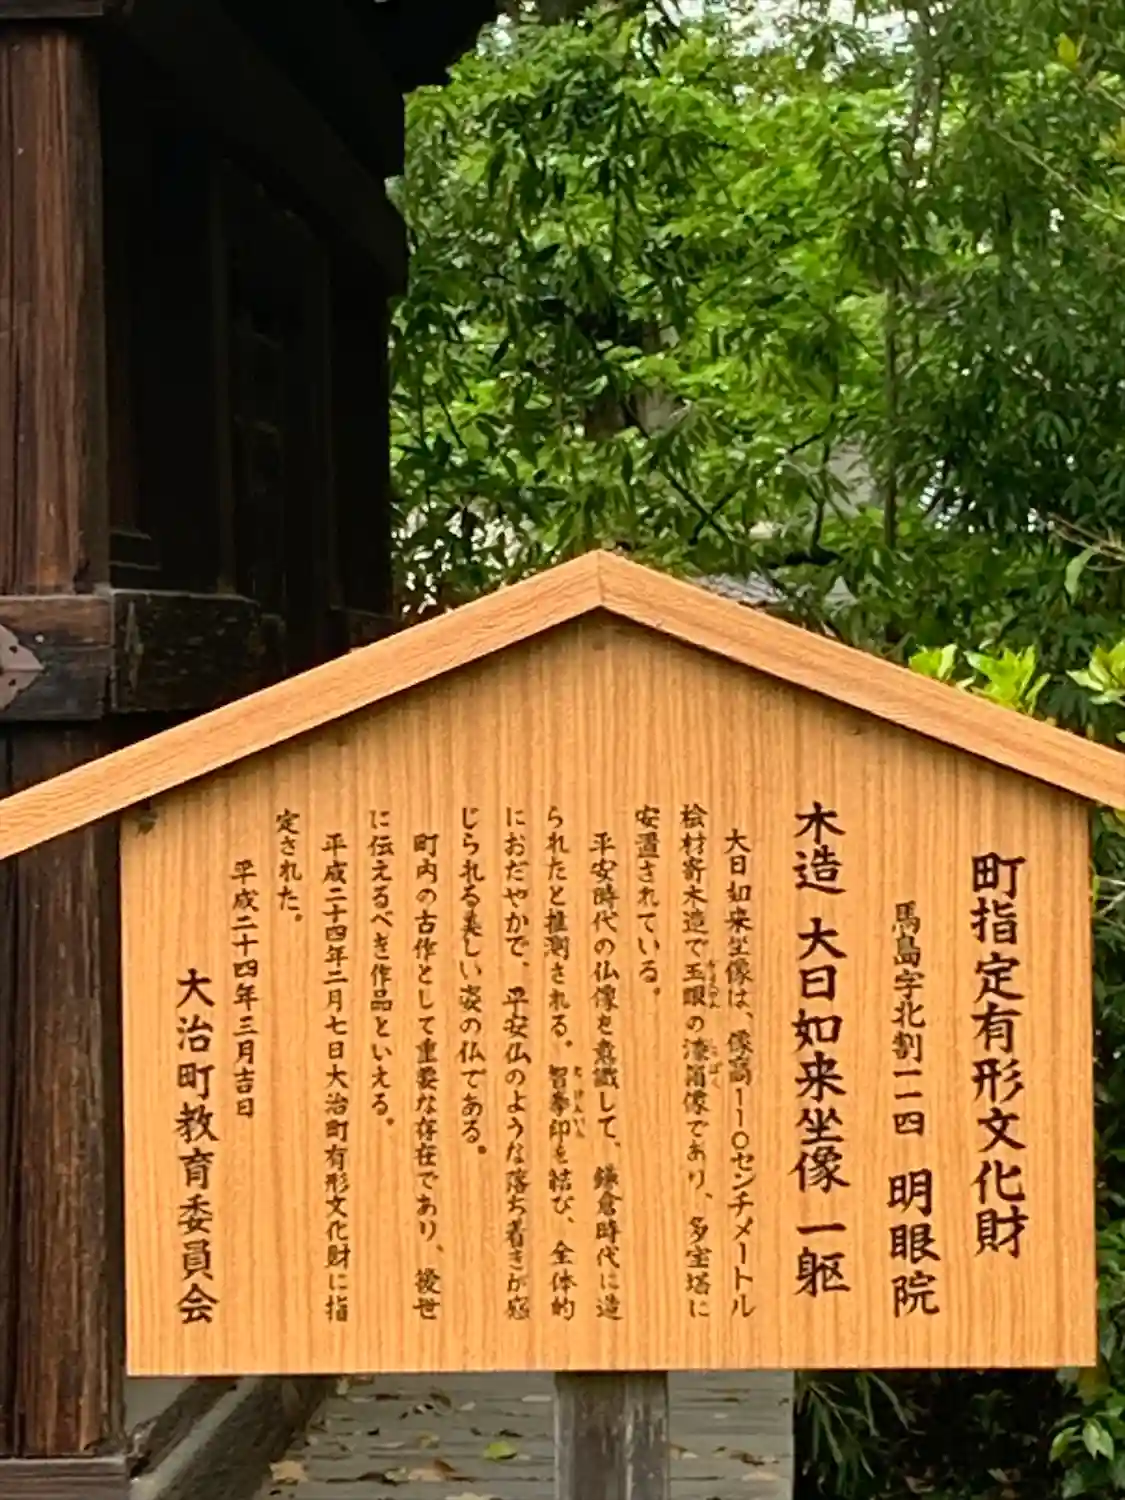 町指定有形文化財
馬島字北割一一四 明眼院
木造 大日如来坐像 一躯
大日如来坐像は、像高一一〇センチメートル
桧材寄木造で玉眼の漆箔像であり、多宝塔に
安置されている。
平安時代の仏像を意識して、鎌倉時代に造
られたと推測される。智拳印を結び、全体的
におだやかで、平安仏のような落ち着きが感
じられる美しい姿の仏である。
町内の古作として重要な存在であり、後世
に伝えるべき作品といえる。
平成二十四年二月七日大治町有形文化財に指
定された。
平成二十四年三月吉日
大治町教育委員会